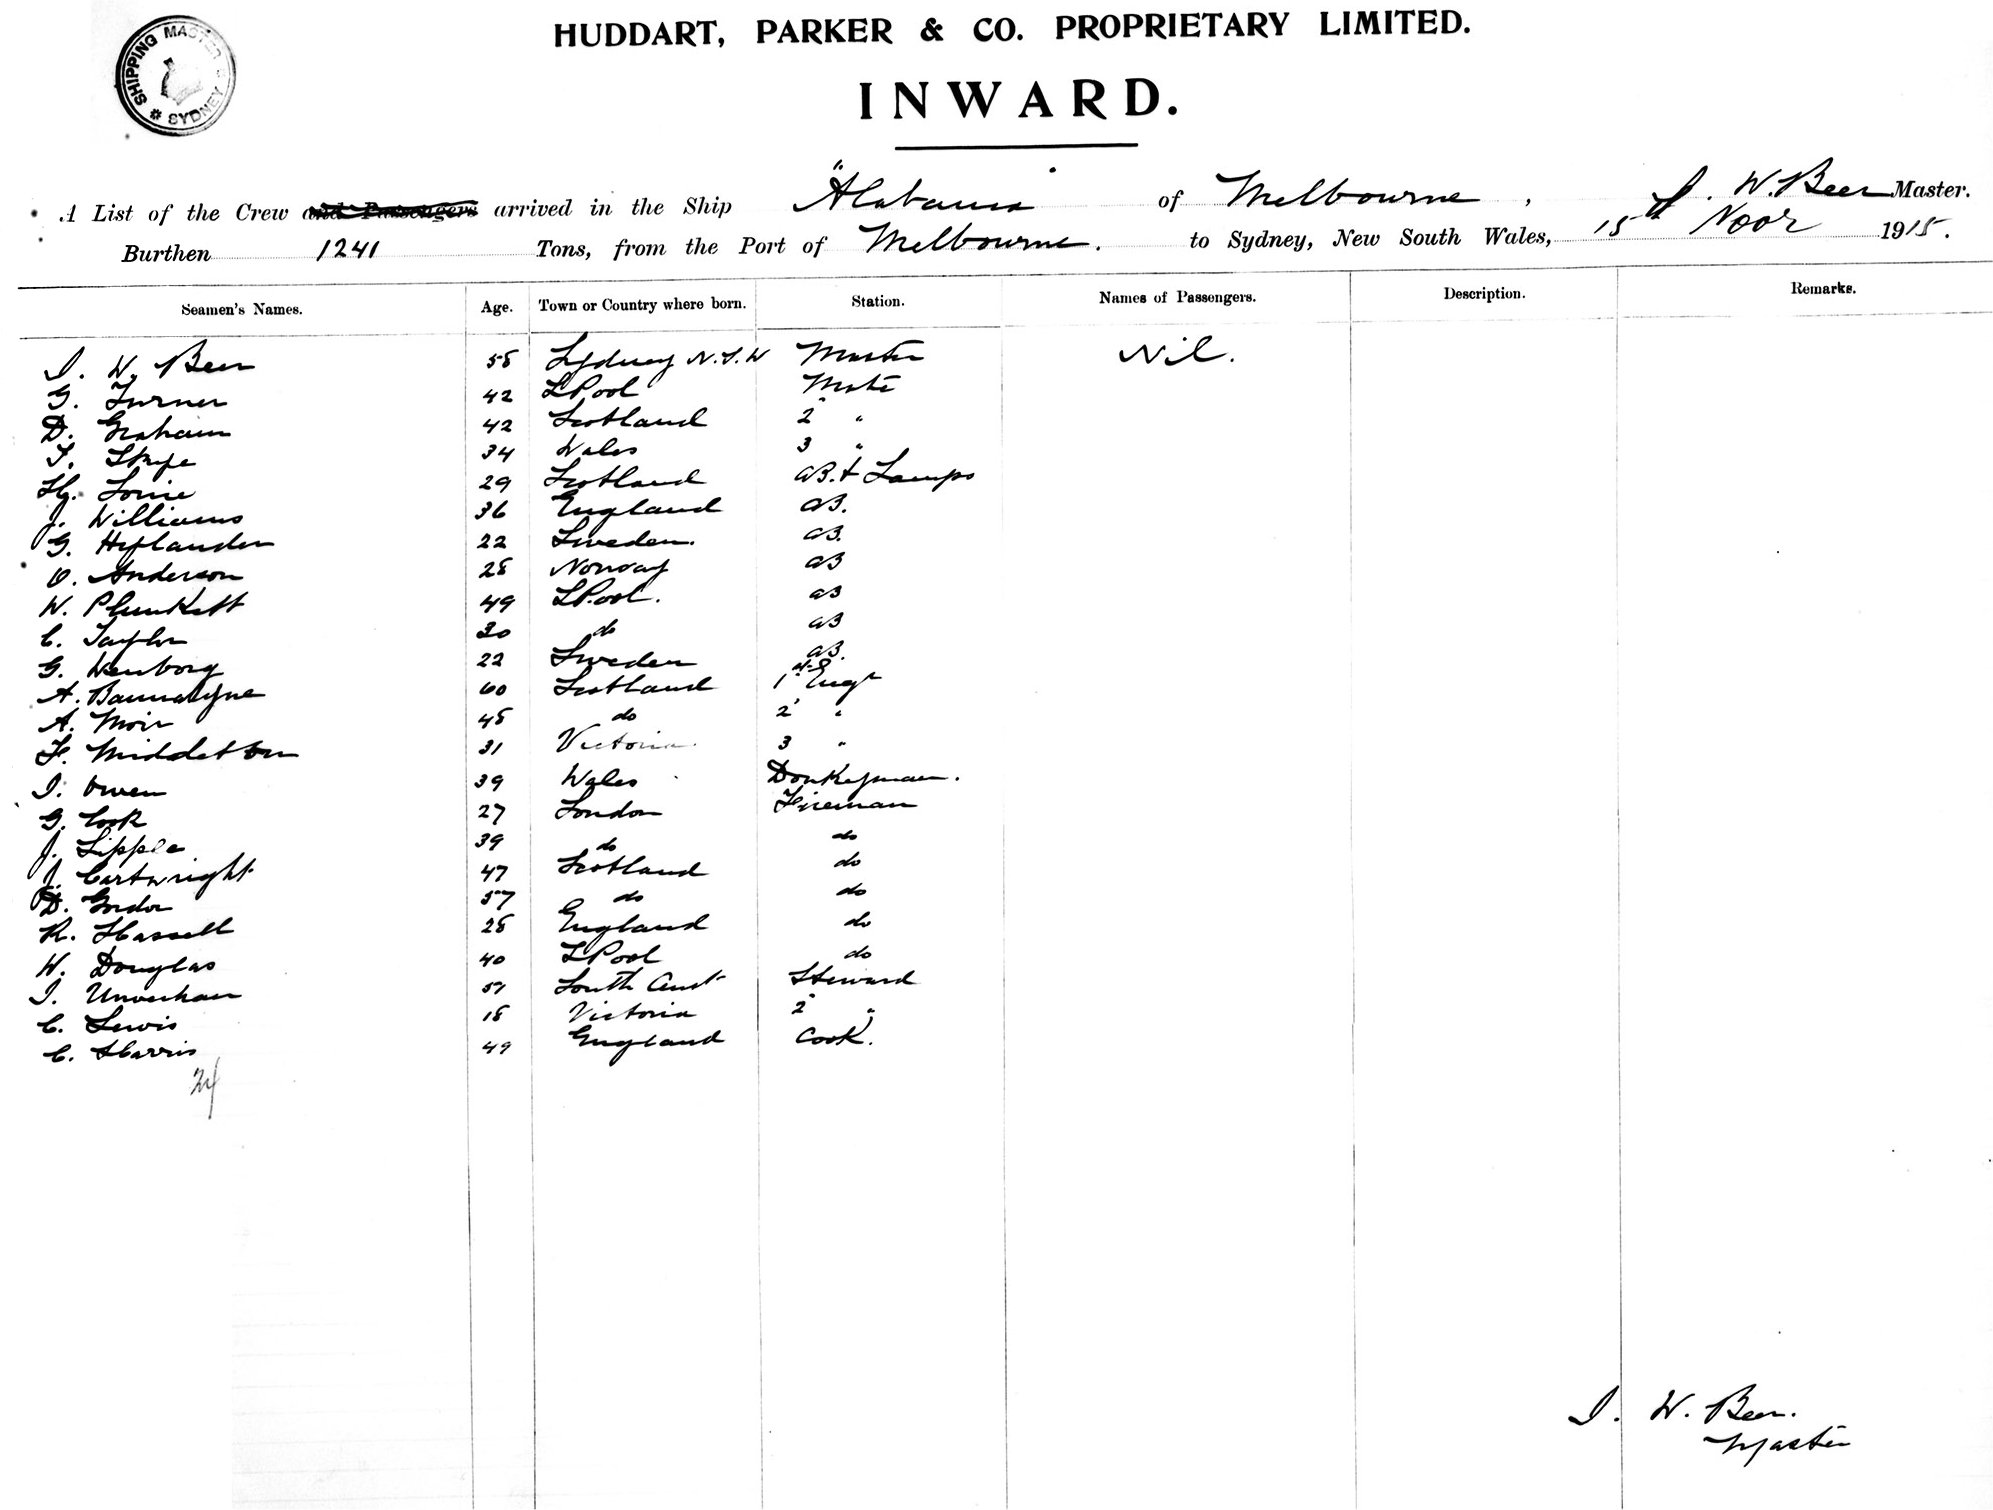 SHIPPING MASTER SYDNEY
HUDDART, PARKER & CO. PROPRIETARY LIMITED.
INWARD.
A List of the Crew and Passengers arrived in the Ship "Alabama" of Melbourne, I. W. Beer Master.
Burthen 1241 Tons, from the Port of Melbourne. to Sydney, New South Wales, 15th Novr 1915.
Seamen's Names. Age. Town or Country where born. Station. Names of Passengers. Description. Remarks.
I. W. Beer 58 Sydney N.S.W Master Nil.
G. Turner 42 LPool Mate
D. Graham 42 Scotland 2 "
T. Skife 34 Wales 3 "
29 Scotland AB. & Lamps
J. Williams 36 England AB.
G. 22 Sweden. AB.
O. Anderson 28 Norway AB
W. Plunkett 49 LPool. AB
C. Taylor 30 do AB
G. Wenborg 22 Sweden AB.
A. Bannatyne 60 Scotland 1st Engr
A. Moir 48 do 2 "
F. Middleton 31 Victoria 3 "
I. Owen 39 Wales Donkeyman.
G. Cook 27 London Fireman
J. Lipple 39 do do
J. Cartwright 47 Scotland do
D. Gordon 57 do do
R. Hassell 28 England do
W. Douglas 40 LPool do
I. Unverhau 51 South Aust Steward
C. Lewis 18 Victoria 2 "
C. Harris 49 England Cook.
24
I. W. Beer.
Master